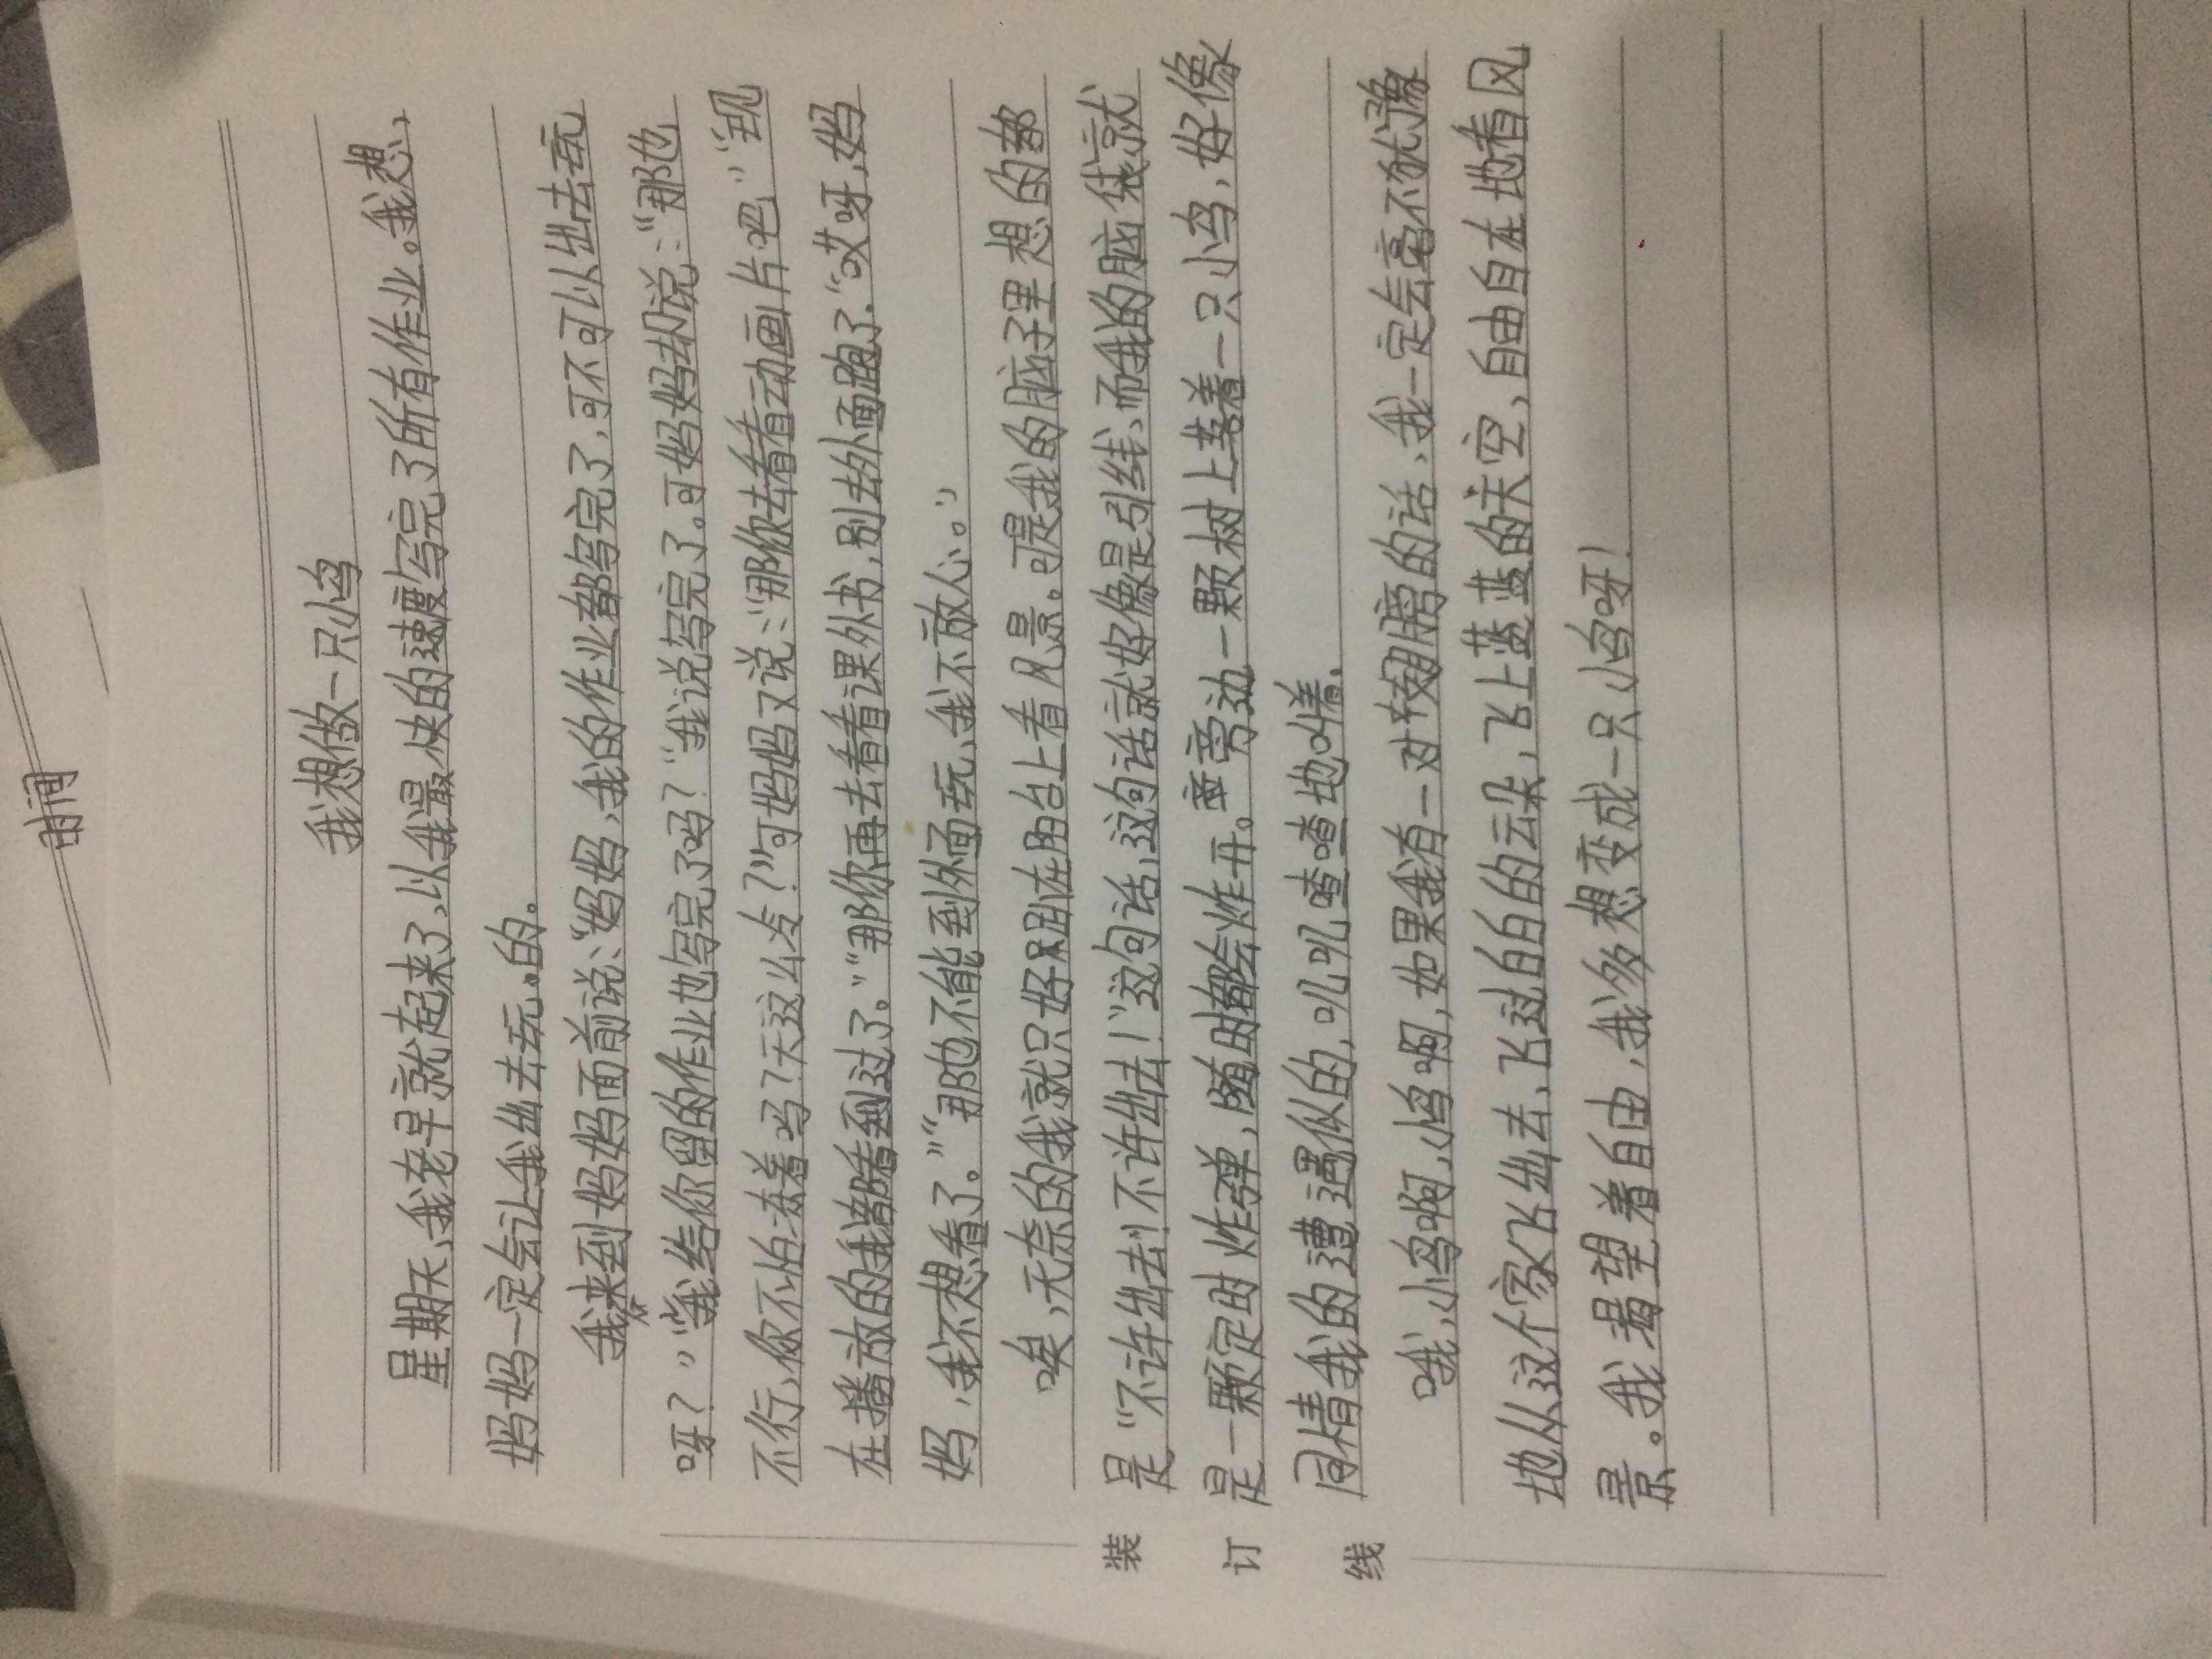 时间
我想做一只小鸟
星期天,我老早就起来了,以我最快的速度写完了所有作业。我想,
妈妈一定会让我出去玩。的。
我来到妈妈面前说:“妈妈,我的作业都写完了,可不可以出去玩
呀?”“我给你留的作业也写完了吗?”我说写完了。可妈妈却说:“那也
不行,你不怕冻着吗?天这么冷?”可妈妈又说:“那你去看看动画片吧”“现
在播放的我都看到过了。”“那你再去看看课外书,别去外面跑了.”“哎呀,妈
妈,我不想看了。”“那也不能到外面玩,我不放心。”
唉,无奈的我就只好趴在阳台上看风景。可是我的脑子里想的都
是“不许出去!不许出去!”这句话,这句话就好像是引线,而我的脑袋就
是一颗定时炸弹,随时都会炸开。旁边一颗树上落着一只小鸟,好像
同情我的遭遇似的,叽叽喳喳地叫着.
哦,小鸟啊,小鸟啊,如果我有一对翅膀的话,我一定会毫不犹豫
地从这个家飞出去,飞过白白的云朵,飞上蓝蓝的天空,自由自在地看风
景。我渴望着自由,我多想变成一只小鸟呀!
装
订
线